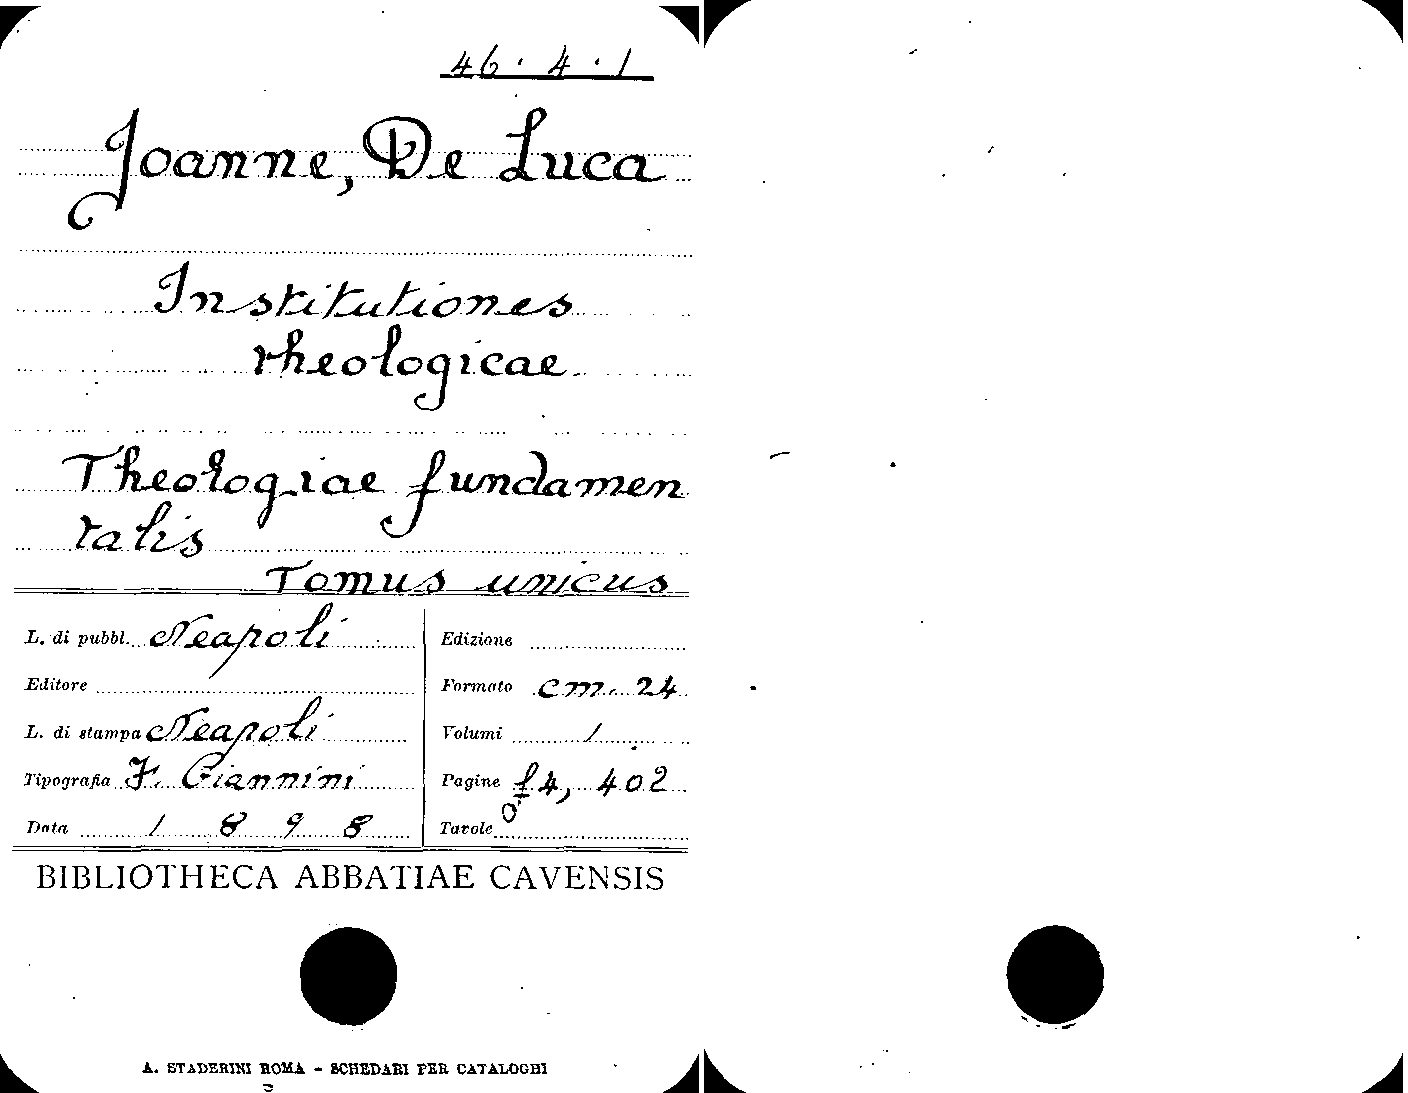 46 · 4 · 1
Joanne, De Luca
Institutiones
theologicae
Theologiae fundamen
talis
Tomus unicus
L. di pubbl. Neapoli
Edizione
Editore
Formato cm. 24
L. di stampa Neapoli
Volumi 1
Tipografia F. Giannini
Pagine 14, 402
Data 1898
Tavole
BIBLIOTHECA ABBATIAE CAVENSIS
A. STADERINI ROMA - SCHEDARI PER CATALOGHI